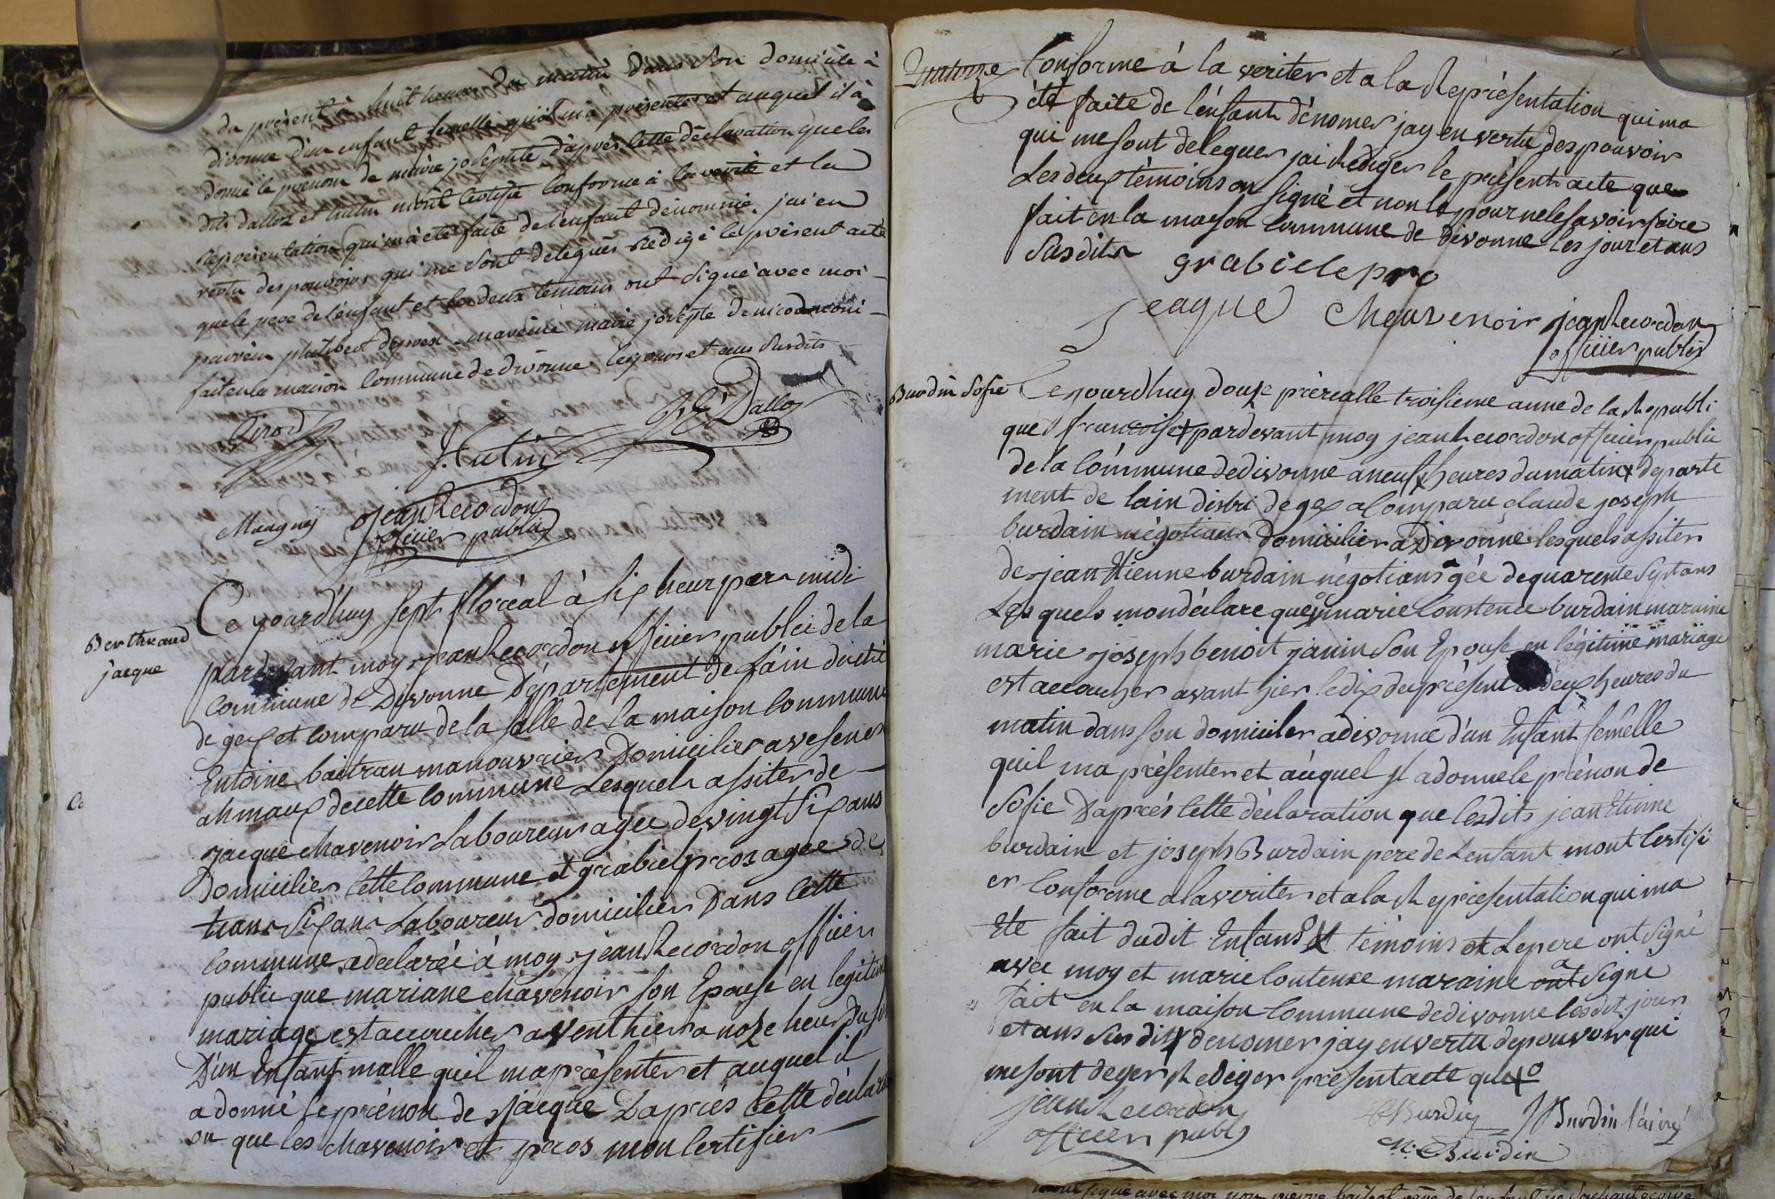 du présent à huit heures du matin dans son domicile à
divonne d'un enfant femelle qu'il m'a présenté et auquel il a
donné le prénom de marie josephte, d'après cette déclaration que les
dits dallox et hutin m'ont certifié conforme à la vérité et la
représentation qui m'a été faite de l'enfant dénommé. j'ai en
vertu des pouvoirs qui me sont délégués rédigé le présent acte
que le pere de l'enfant et les deux temoins ont signé avec moi
parrein philibert maveine marie josephte de
fait en la maison commune de divonne les jours et ans susdits
Girod
J. Hutin
Dallox
jean Recordon
officier public
Berthraud
jacque
Ce jourdhuy sept floréal à six heur par midi
pardevant moy jean Recordon officier publci de la
commune de Divonne Département de l'ain distri
de gex et comparu de la salle de la maison commune
Entoine baitrau manouvrier Domicilier a vesenex
ahmaux de cette commune Lesquels assiter de
jacque chavenoir Laboureur agee de vingt six ans
Domicilier cette commune et grabiel pros agee de
trans six ans Laboureur domicilier Dans cette
commune adeclaréé à moy jean Recordon officier
public que mariane chavenoir son Epouse en legitim
mariage est accoucher avent hier a noze heur du
D'un Enfant malle quil ma présenter et auquel il
a donné le prénom de jacque D'apres cette déclara
on que les chavenoir et pros mon certifier
conforme à la veriter et a la Représentation qui ma
été faite de l'énfant dénomer jay en vertu des pouvoir
qui me sont deleguer jai Rediger le présent acte que
Les deux témoins on signé et non le pour ne le savoir faire
fait en la maison commune de divonne les jour et ans
Susdits
grabiele pro
jeaque Chauvenoir jean Recordon
officier public
Burdin Sofie
Ce jourdhuy douze prérialle troisieme anne de la Republi
que francoise pardevant moy jean Recordon officier public
de la cómmune de divonne a neuf heures du matin departe
ment de lain distri de gex a Comparu claude joseph
burdain négotians domicilier a Divonne lesquels assiter
de jean Etienne burdain négotians agée de quarente sept ans
Les quels mon déclare que marie Constence burdain maraine
marie joseph benoit janin son Epouse en légitime mariage
est accoucher avant hier le dix du présent a deux heures du
matin dans son domiciler a divonne d'un Enfant femelle
quil ma présenter et auquel il a donne le prénon de
Sofie D'aprés cette déclaration que lesdits jean Etienne
burdain et joseph Burdain pere de Lenfant mont certifi
er conforme a la veriter et a la Représentation qui ma
Ete fait dudit Enfans témoins et Le pere ont signé
avec moy et marie Contense maraine a signé
fait en la maison commune de divonne lesdit jour
et ans sus dit denomer jay en vertu de pouvoir qui
me sont Rediger présent acte que
jean Recordon
officier publ
Burdin
Burdin l'ainé
M. C. Burdin